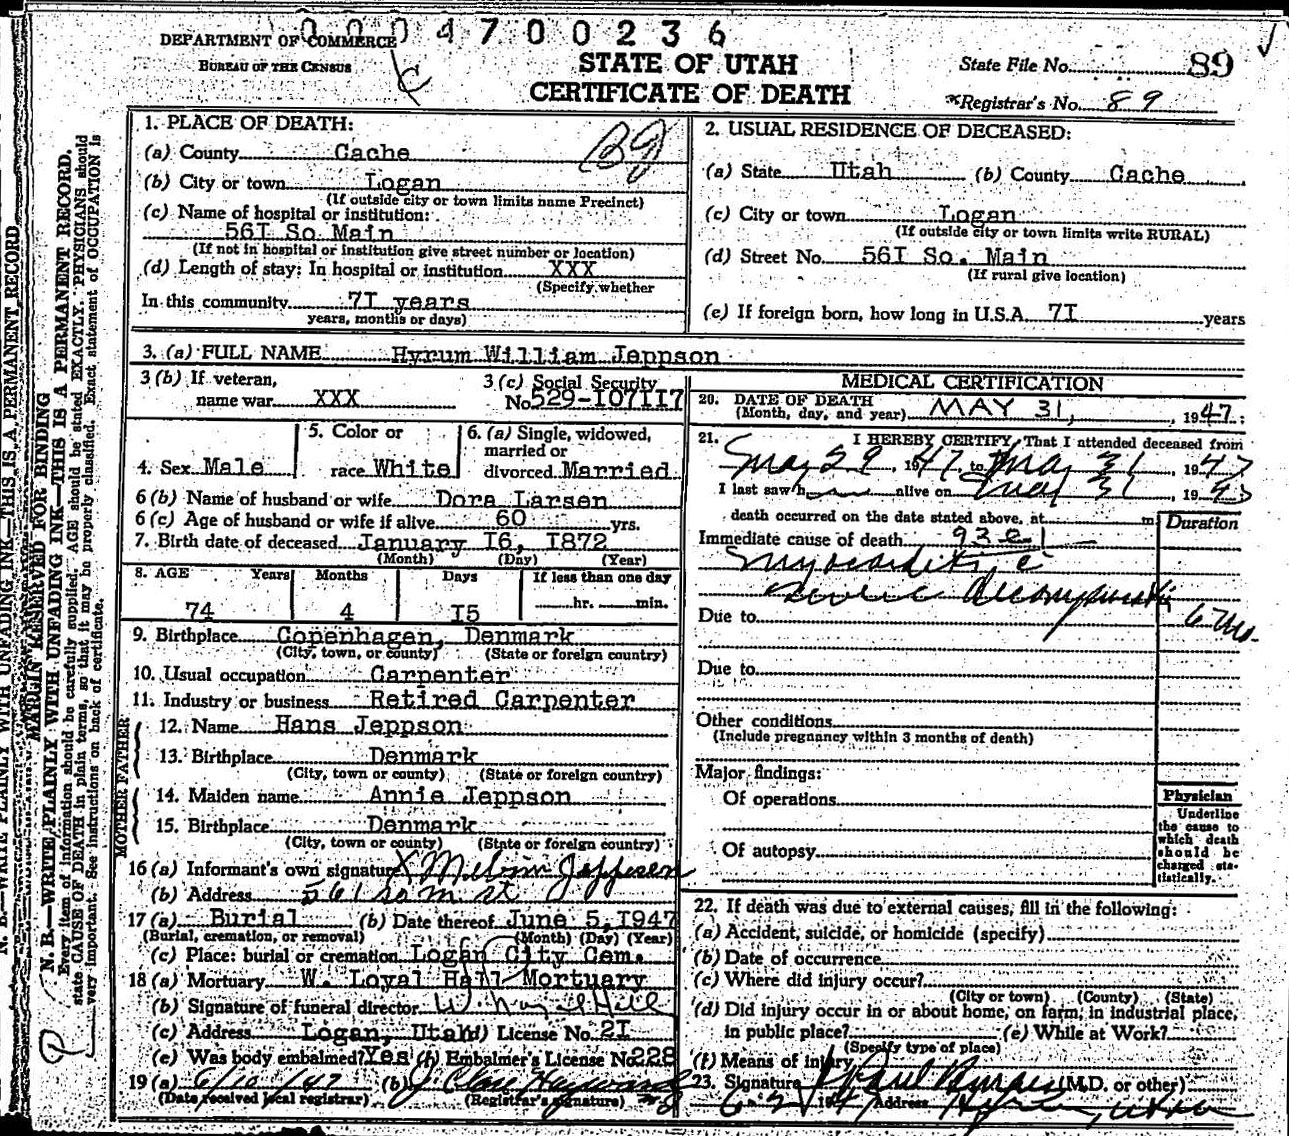 0004700236
DEPARTMENT OF COMMERCE
BUREAU OF THE CENSUS
STATE OF UTAH
CERTIFICATE OF DEATH
State File No. 89
Registrar's No. 89
1. PLACE OF DEATH:
(a) County Cache
(b) City or town Logan
(If outside city or town limits name Precinct)
(c) Name of hospital or institution:
56I So Main
(If not in hospital or institution give street number or location)
(d) Length of stay: In hospital or institution XXX
(Specify whether
In this community 7I years
years, months or days)
2. USUAL RESIDENCE OF DECEASED:
(a) State Utah (b) County Cache
(c) City or town Logan
(If outside city or town limits write RURAL)
(d) Street No. 56I So. Main
(If rural give location)
(e) If foreign born, how long in U.S.A. 7I years
3. (a) FULL NAME Hyrum William Jeppson
3 (b) If veteran,
name war XXX
3 (c) Social Security
No 529-I07II7
4. Sex Male
5. Color or
race White
6. (a) Single, widowed,
married or
divorced Married
6 (b) Name of husband or wife Dora Larsen
6 (c) Age of husband or wife if alive 60 yrs.
7. Birth date of deceased January I6, I872
(Month) (Day) (Year)
8. AGE Years Months Days If less than one day
74 4 I5 hr. min.
9. Birthplace Copenhagen, Denmark
(City, town, or county) (State or foreign country)
10. Usual occupation Carpenter
11. Industry or business Retired Carpenter
FATHER
12. Name Hans Jeppson
13. Birthplace Denmark
(City, town or county) (State or foreign country)
MOTHER
14. Maiden name Annie Jeppson
15. Birthplace Denmark
(City, town or county) (State or foreign country)
16 (a) Informant's own signature X Melvin Jeppesen
(b) Address 561 so m st
17 (a) Burial (b) Date thereof June 5, I947
(Burial, cremation, or removal) (Month) (Day) (Year)
(c) Place: burial or cremation Logan City Cem.
18 (a) Mortuary W. Loyal Hall Mortuary
(b) Signature of funeral director W. Loyal Hall
(c) Address Logan, Utah (d) License No. 2I
(e) Was body embalmed? Yes (f) Embalmer's License No 228
19 (a) 6/10/47 (b)
(Date received local registrar) (Registrar's signature)
MEDICAL CERTIFICATION
20. DATE OF DEATH
(Month, day, and year) MAY 31, 1947:
21. I HEREBY CERTIFY, That I attended deceased from
May 29, 1947 to May 31, 1947
I last saw h alive on May 31, 19
death occurred on the date stated above, at m
Duration
Immediate cause of death
Myocarditis c
Due to 6 Mo.
Due to
Other conditions
(Include pregnancy within 3 months of death)
Major findings:
Of operations
Of autopsy
Physician
Underline
the cause to
which death
should be
charged sta-
tistically.
22. If death was due to external causes, fill in the following:
(a) Accident, suicide, or homicide (specify)
(b) Date of occurrence
(c) Where did injury occur?
(City or town) (County) (State)
(d) Did injury occur in or about home, on farm, in industrial place,
in public place? (e) While at Work?
(Specify type of place)
(f) Means of injury
23. Signature (M.D. or other)
1947 Address
N. B.—WRITE PLAINLY WITH UNFADING INK—THIS IS A PERMANENT RECORD
MARGIN RESERVED FOR BINDING
N. B.—WRITE PLAINLY WITH UNFADING INK—THIS IS A PERMANENT RECORD.
Every item of information should be carefully supplied. AGE should be stated EXACTLY. PHYSICIANS should
state CAUSE OF DEATH in plain terms, so that it may be properly classified. Exact statement of OCCUPATION is
very important. See instructions on back of certificate.